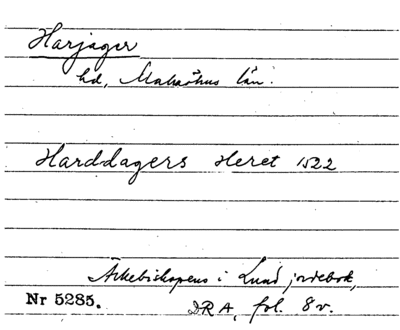 Harjager
hd, Malmöhus län.
Harddagers Heret 1522
Ärkebiskopens i Lund jordebok,
Nr 5285.
DRA, fol. 8v.